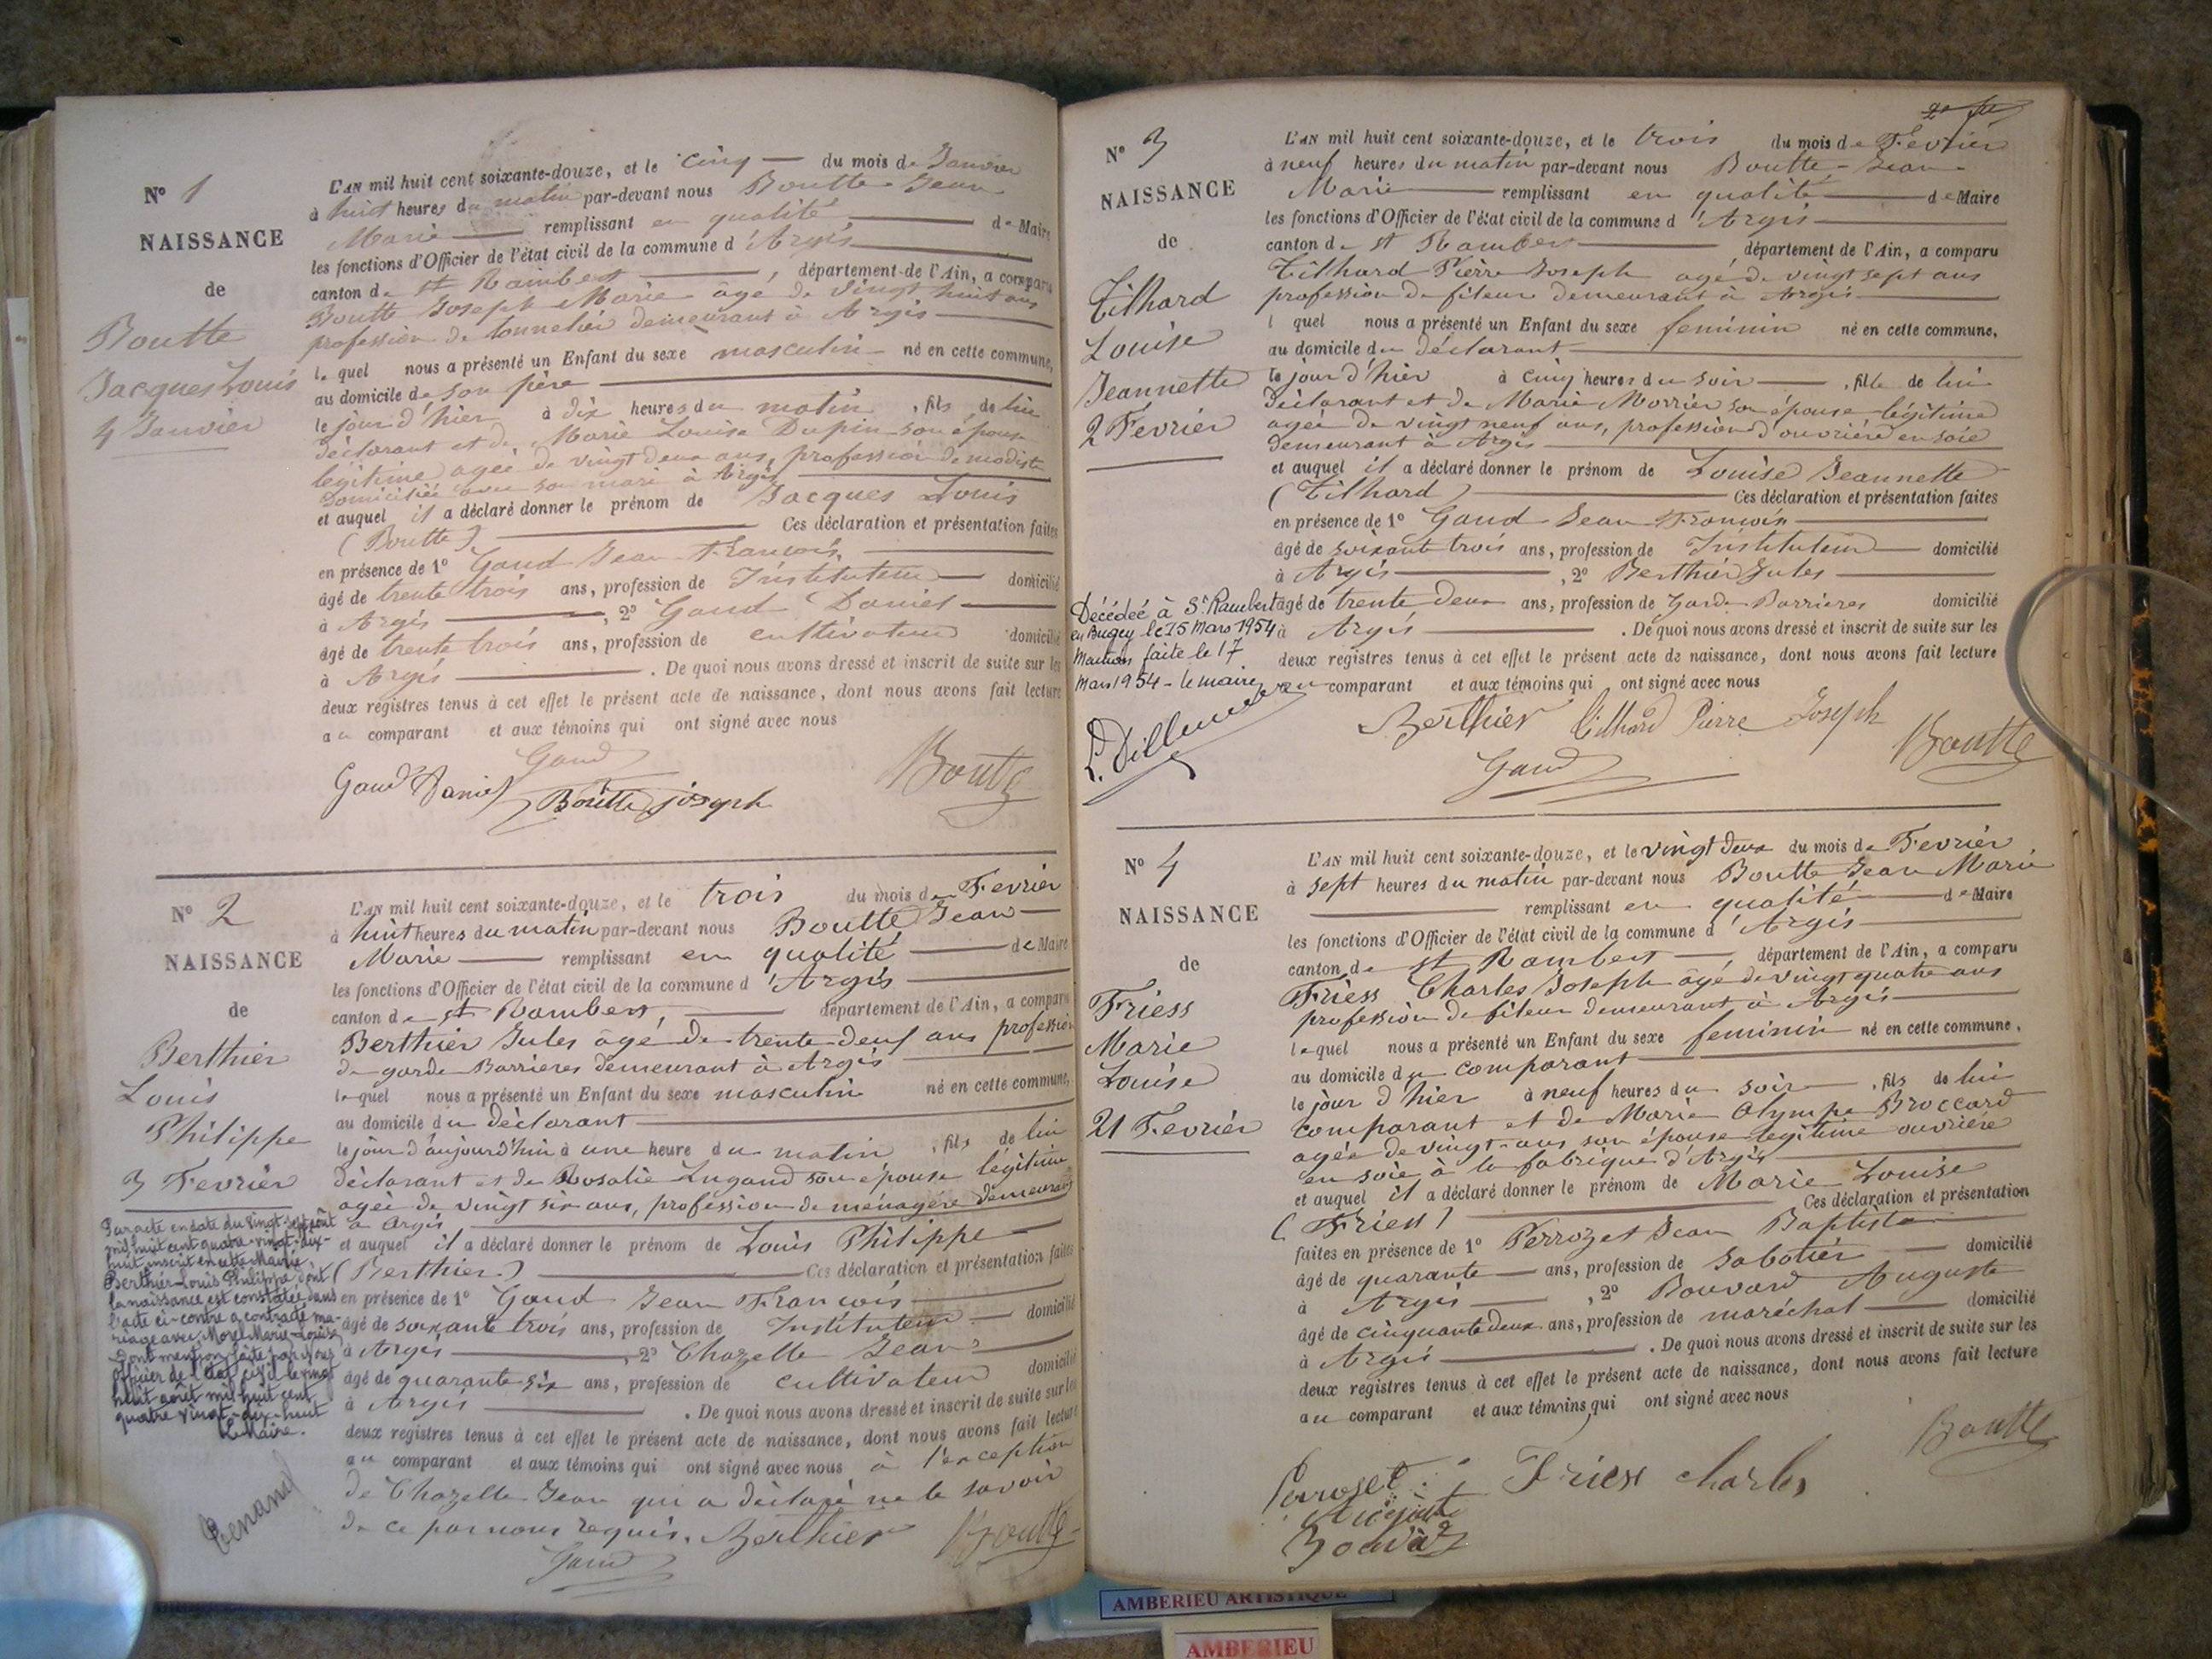 N° 1
NAISSANCE
de
Boutte
Jacques Louis
4 Janvier
L'AN mil huit cent soixante-douze, et le cinq du mois de Janvier
à huit heures du matin par-devant nous Boutte Jean
Marie remplissant en qualité de Maire
les fonctions d'Officier de l'état civil de la commune d'Argis
canton de St Rambert, département de l'Ain, a comparu
Boutte Joseph Marie âgé de vingt huit ans
profession de tonnelier demeurant à Argis
lequel nous a présenté un Enfant du sexe masculin né en cette commune,
au domicile de son père
le jour d'hier à dix heures du matin, fils de lui
déclarant et de Marie Louise Dupin son épouse
légitime agée de vingt deux ans, profession de modiste
domiciliée avec son mari à Argis
et auquel il a déclaré donner le prénom de Jacques Louis
(Boutte) Ces déclaration et présentation faites
en présence de 1° Gaud Jean François,
âgé de trente trois ans, profession de Instituteur domicilié
à Argis, 2° Gaud Daniel
âgé de trente trois ans, profession de cultivateur domicilié
à Argis. De quoi nous avons dressé et inscrit de suite sur les
deux registres tenus à cet effet le présent acte de naissance, dont nous avons fait lecture
au comparant et aux témoins qui ont signé avec nous
Gaud
Gaud Daniel Boutte joseph Boutte
N° 2
NAISSANCE
de
Berthier
Louis
Philippe
3 Fevrier
Par acte en date du vingt-sept août
mil huit cent quatre-vingt-dix-
huit inscrit en cette Mairie
Berthier Louis Philippe dont
la naissance est constatée dans
l'acte ci-contre a contracté ma-
riage avec Morel Marie-Louise
Dont mention faite par nous
officier de l'Etat civil le vingt
huit août mil huit cent
quatre vingt-dix-huit
Le Maire.
L'AN mil huit cent soixante-douze, et le trois du mois de Fevrier
à huit heures du matin par-devant nous Boutte Jean
Marie remplissant en qualité de Maire
les fonctions d'Officier de l'état civil de la commune d'Argis
canton de St Rambert, département de l'Ain, a comparu
Berthier Jules âgé de trente deux ans profession
de garde Barrieres demeurant à Argis
lequel nous a présenté un Enfant du sexe masculin né en cette commune,
au domicile du déclarant
le jour d'aujourd'hui à une heure du matin, fils de lui
déclarant et de Rosalie Lugand son épouse légitime
agée de vingt six ans, profession de ménagère demeurant
à Argis
et auquel il a déclaré donner le prénom de Louis Philippe
(Berthier) Ces déclaration et présentation faites
en présence de 1° Gaud Jean François
âgé de soixante trois ans, profession de Instituteur domicilié
à Argis, 2° Chazelle Jean
âgé de quarante six ans, profession de cultivateur domicilié
à Argis. De quoi nous avons dressé et inscrit de suite sur les
deux registres tenus à cet effet le présent acte de naissance, dont nous avons fait lecture
au comparant et aux témoins qui ont signé avec nous à l'exception
de Chazelle Jean qui a déclaré ne le savoir
de ce par nous requis. Berthier Boutte
Gaud
N° 3
NAISSANCE
de
Tilhard
Louise
Jeannette
2 Fevrier
Décédée à St Rambert
en Bugey le 15 Mars 1954
Mention faite le 17
Mars 1954 - le maire
L'AN mil huit cent soixante-douze, et le trois du mois de Fevrier
à neuf heures du matin par-devant nous Boutte Jean
Marie remplissant en qualité de Maire
les fonctions d'Officier de l'état civil de la commune d'Argis
canton de St Rambert département de l'Ain, a comparu
Tilhard Pierre Joseph agé de vingt sept ans
profession de fileur demeurant à Argis
lequel nous a présenté un Enfant du sexe feminin né en cette commune,
au domicile du déclarant
le jour d'hier à cinq heures du soir, fille de lui
déclarant et de Marie Morrier son épouse légitime
agée de vingt neuf ans, profession d'ouvrière en soie
demeurant à Argis
et auquel il a déclaré donner le prénom de Louise Jeannette
(Tilhard) Ces déclaration et présentation faites
en présence de 1° Gaud Jean François
âgé de soixante trois ans, profession de Instituteur domicilié
à Argis, 2° Berthier Jules
âgé de trente deux ans, profession de Garde Barrieres domicilié
à Argis. De quoi nous avons dressé et inscrit de suite sur les
deux registres tenus à cet effet le présent acte de naissance, dont nous avons fait lecture
au comparant et aux témoins qui ont signé avec nous
Berthier Tilhard Pierre Joseph Boutte
Gaud
N° 4
NAISSANCE
de
Friess
Marie
Louise
21 Fevrier
L'AN mil huit cent soixante-douze, et le vingt deux du mois de Fevrier
à sept heures du matin par-devant nous Boutte Jean Marie
remplissant en qualité de Maire
les fonctions d'Officier de l'état civil de la commune d'Argis
canton de St Rambert, département de l'Ain, a comparu
Friess Charles Joseph âgé de vingt quatre ans
profession de fileur demeurant à Argis
lequel nous a présenté un Enfant du sexe feminin né en cette commune,
au domicile du comparant
le jour d'hier à neuf heures du soir, fils de lui
comparant et de Marie Olympe Broccard
agée de vingt ans son épouse légitime ouvrière
en soie à la fabrique d'Argis
et auquel il a déclaré donner le prénom de Marie Louise
(Friess) Ces déclaration et présentation
faites en présence de 1° Perrozet Jean Baptiste
âgé de quarante ans, profession de Sabotier domicilié
à Argis, 2° Bouvard Auguste
âgé de cinquante deux ans, profession de maréchal domicilié
à Argis. De quoi nous avons dressé et inscrit de suite sur les
deux registres tenus à cet effet le présent acte de naissance, dont nous avons fait lecture
au comparant et aux témoins qui ont signé avec nous
Boutte
Perrozet Friess Charles
AMBERIEU ARTISTIQUE
AMBERIEU